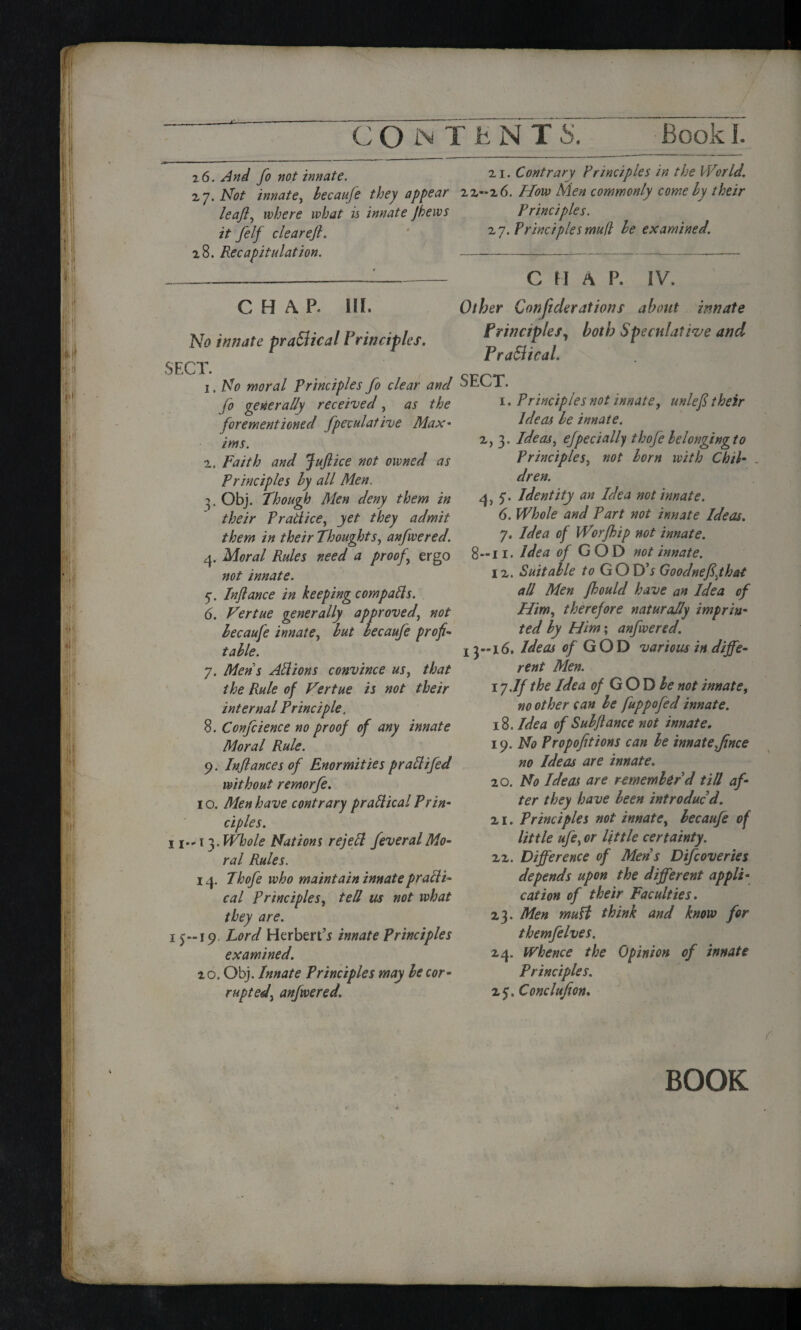 CONTENTS. Book I.
26. And ſo not innate.
27. Not innate, becauſe they appear
leaſt, where what is innate ſhews
it ſelf cleareſt.
28. Recapitulation.
CHAP. III.
No innate practical Principles.
SECT.
1. No moral Principles ſo clear and
ſo generally received, as the
forementioned ſpeculative Max-
ims.
2. Faith and Juſtice not owned as
Principles by all Men.
3. Obj. Though Men deny them in
their Practice, yet they admit
them in their Thoughts, anſwered.
4. Moral Rules need a proof, ergo
not innate.
5. Inſtance in keeping compacts.
6. Vertue generally approved, not
becauſe innate, but becauſe profi-
table.
7. Men's Actions convince us, that
the Rule of Vertue is not their
internal Principle.
8. Conſcience no proof of any innate
Moral Rule.
9. Inſtances of Enormities practiſed
without remorſe.
10. Men have contrary practical Prin-
ciples.
11--13. Whole Nations reject ſeveral Mo-
ral Rules.
14. Thoſe who maintain innate practi-
cal Principles, tell us not what
they are.
15--19. Lord Herbert's innate Principles
examined.
20. Obj. Innate Principles may be cor-
rupted, anſwered.
21. Contrary Principles in the World.
22--26. How Men commonly come by their
Principles.
27. Principles muſt be examined.
CHAP. IV.
Other Conſiderations about innate
Principles, both Speculative and
Practical.
SECT.
1. Principles not innate, unleſs their
Ideas be innate.
2, 3. Ideas, eſpecially thoſe belonging to
Principles, not born with Chil-
dren.
4, 5. Identity an Idea not innate.
6. Whole and Part not innate Ideas.
7. Idea of Worſhip not innate.
8--11. Idea of GOD not innate.
12. Suitable to GOD's Goodneſs, that
all Men ſhould have an Idea of
Him, therefore naturally imprin-
ted by Him; anſwered.
13--16. Ideas of GOD various in diffe-
rent Men.
17. If the Idea of GOD be not innate,
no other can be ſuppoſed innate.
18. Idea of Subſtance not innate.
19. No Propoſitions can be innate, ſince
no Ideas are innate.
20. No Ideas are remember'd till af-
ter they have been introduc'd.
21. Principles not innate, becauſe of
little uſe, or little certainty.
22. Difference of Men's Diſcoveries
depends upon the different appli-
cation of their Faculties.
23. Men muſt think and know for
themſelves.
24. Whence the Opinion of innate
Principles.
25. Concluſion.
BOOK